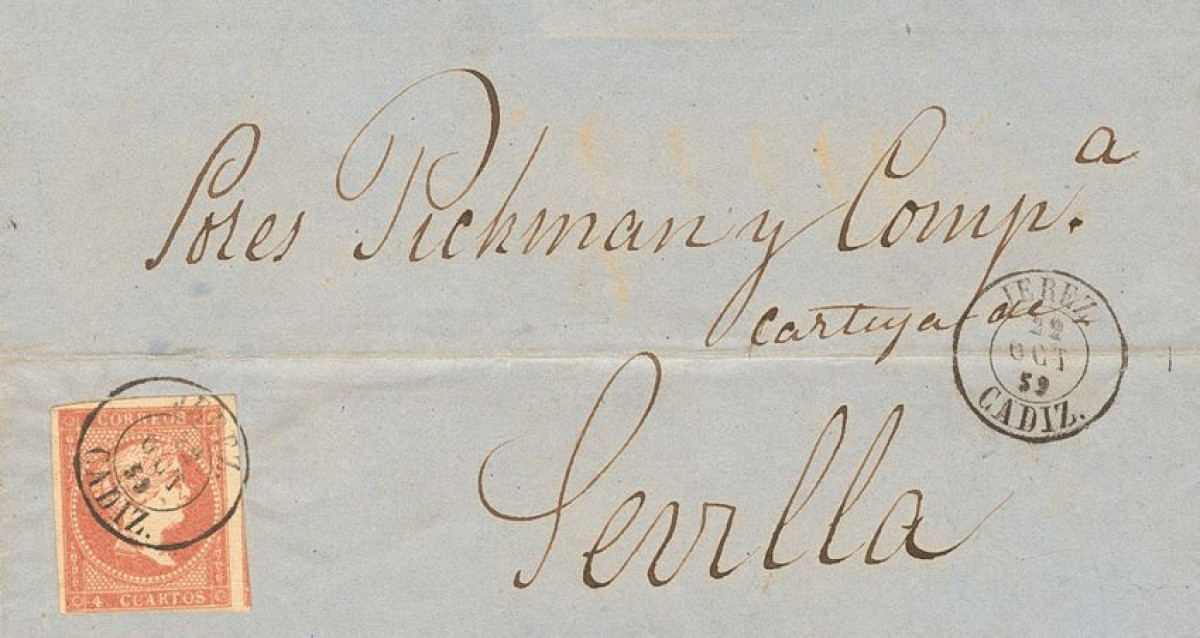 Sores Pickman y Comp.ª
Cartuja de
Sevilla
JEREZ.
22
OCT
59
CADIZ.
CORREOS
JEREZ
OCT
59
CADIZ.
4 CUARTOS